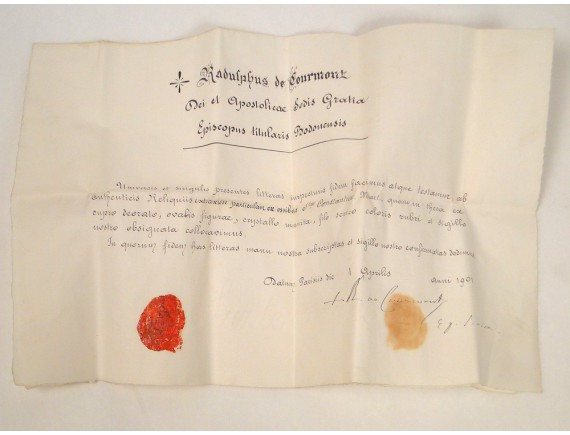 Radulphus de Courmont
Dei et Apostolicae Sedis Gratia
Episcopus titularis Bodonensis
Universis et singulis praesentes litteras inspecturis fidem facimus atque testamur ab
authenticis Reliquiis extraxisse particulam ex ossibus Sti Constantii Mart. quam in theca ex
cupro deorato, ovalis figurae, crystallo munita, filo serico coloris rubri et sigillo
nostro obsignata collocavimus.
In quorum fidem has litteras manu nostra subscriptas et sigillo nostro confirmatas dedimus.
Datum Parisiis die 1 Aprilis anni